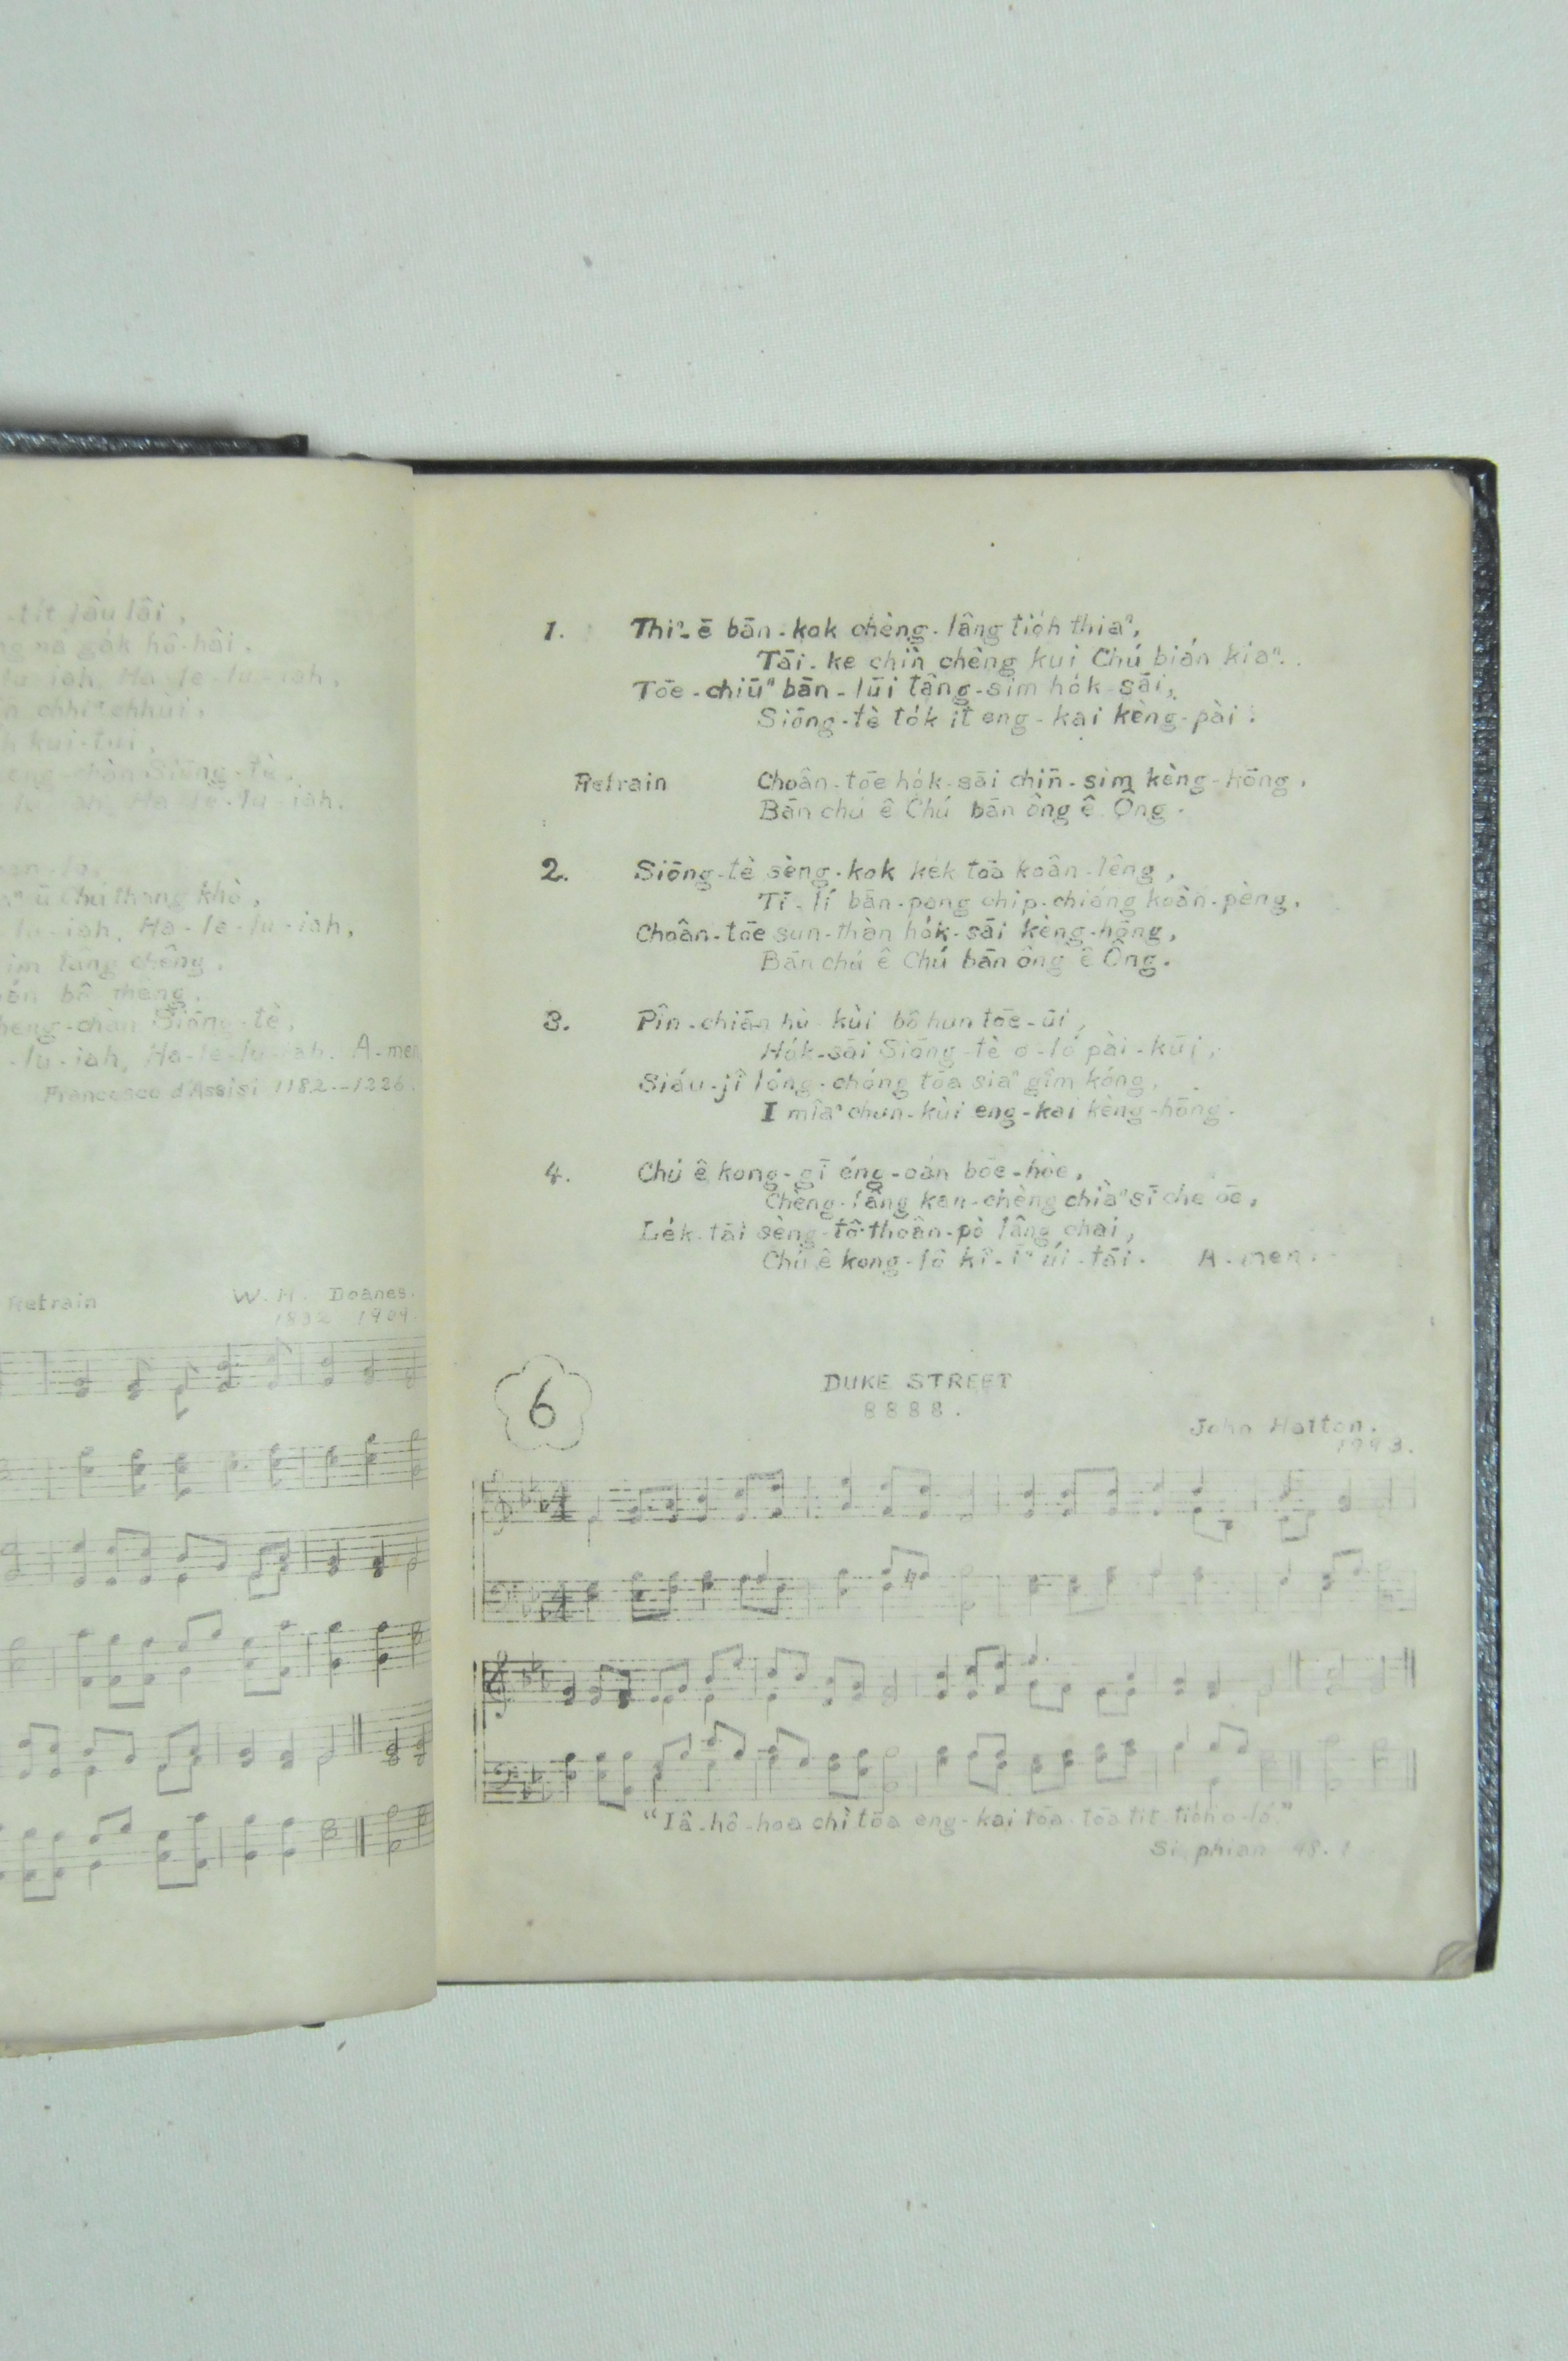 -tit lâu lâi,
ng ná ga̍k hô-hâi,
lu-iah, Ha-le-lu-iah,
chhiⁿ chhùi,
kui-tùi,
chàn Siōng-tè,
Ha-le-lu-iah.
ū Chú thang khò,
lu-iah, Ha-le-lu-iah,
lâng chêng,
bô mêng,
chàn Siōng-tè,
-lu-iah, Ha-le-lu-iah. A-men
Francesco d'Assisi 1182--1226.
Refrain W. H. Doanes.
1832 1909.
1. Thiⁿ-ē bān-kok chèng-lâng tio̍h thiaⁿ,
Tāi-ke chìn chêng kui Chú bián kiaⁿ.
Tōe-chiūⁿ bān-lūi tâng-sim ho̍k-sāi,
Siōng-tè to̍k it eng-kai kèng-pài.
Refrain Choân-tōe ho̍k-sāi chīn-sim kèng-hōng,
Bān chú ê Chú bān ông ê Ông.
2. Siōng-tè sèng-kok ke̍k tōa koân-lêng,
Tī-lí bān-pang chip-chiáng koân-pèng,
Choân-tōe sūn-thàn ho̍k-sāi kèng-hōng,
Bān chú ê Chú bān ông ê Ông.
3. Pîn-chiān hù-kùi bô hun tōe-ūi,
Ho̍k-sāi Siōng-tè o-ló pài-kūi,
Siáu-jî lóng-chóng tōa siaⁿ gîm kóng,
I miâⁿ chun-kùi eng-kai kèng-hōng.
4. Chú ê kong-gī éng-oán bōe-hòe,
Chèng-lâng kan-chèng chiàⁿ sī che ōe,
Le̍k-tāi sèng-tô͘ thoân-pò lâng chai,
Chú ê kong-lô kî-īⁿ úi-tāi. A-men.
6
DUKE STREET
8888.
John Hatton.
1793.
"Iâ-hô-hoa chì tōa eng-kai tōa-tōa tit tio̍h o-ló."
Si-phian 48.1